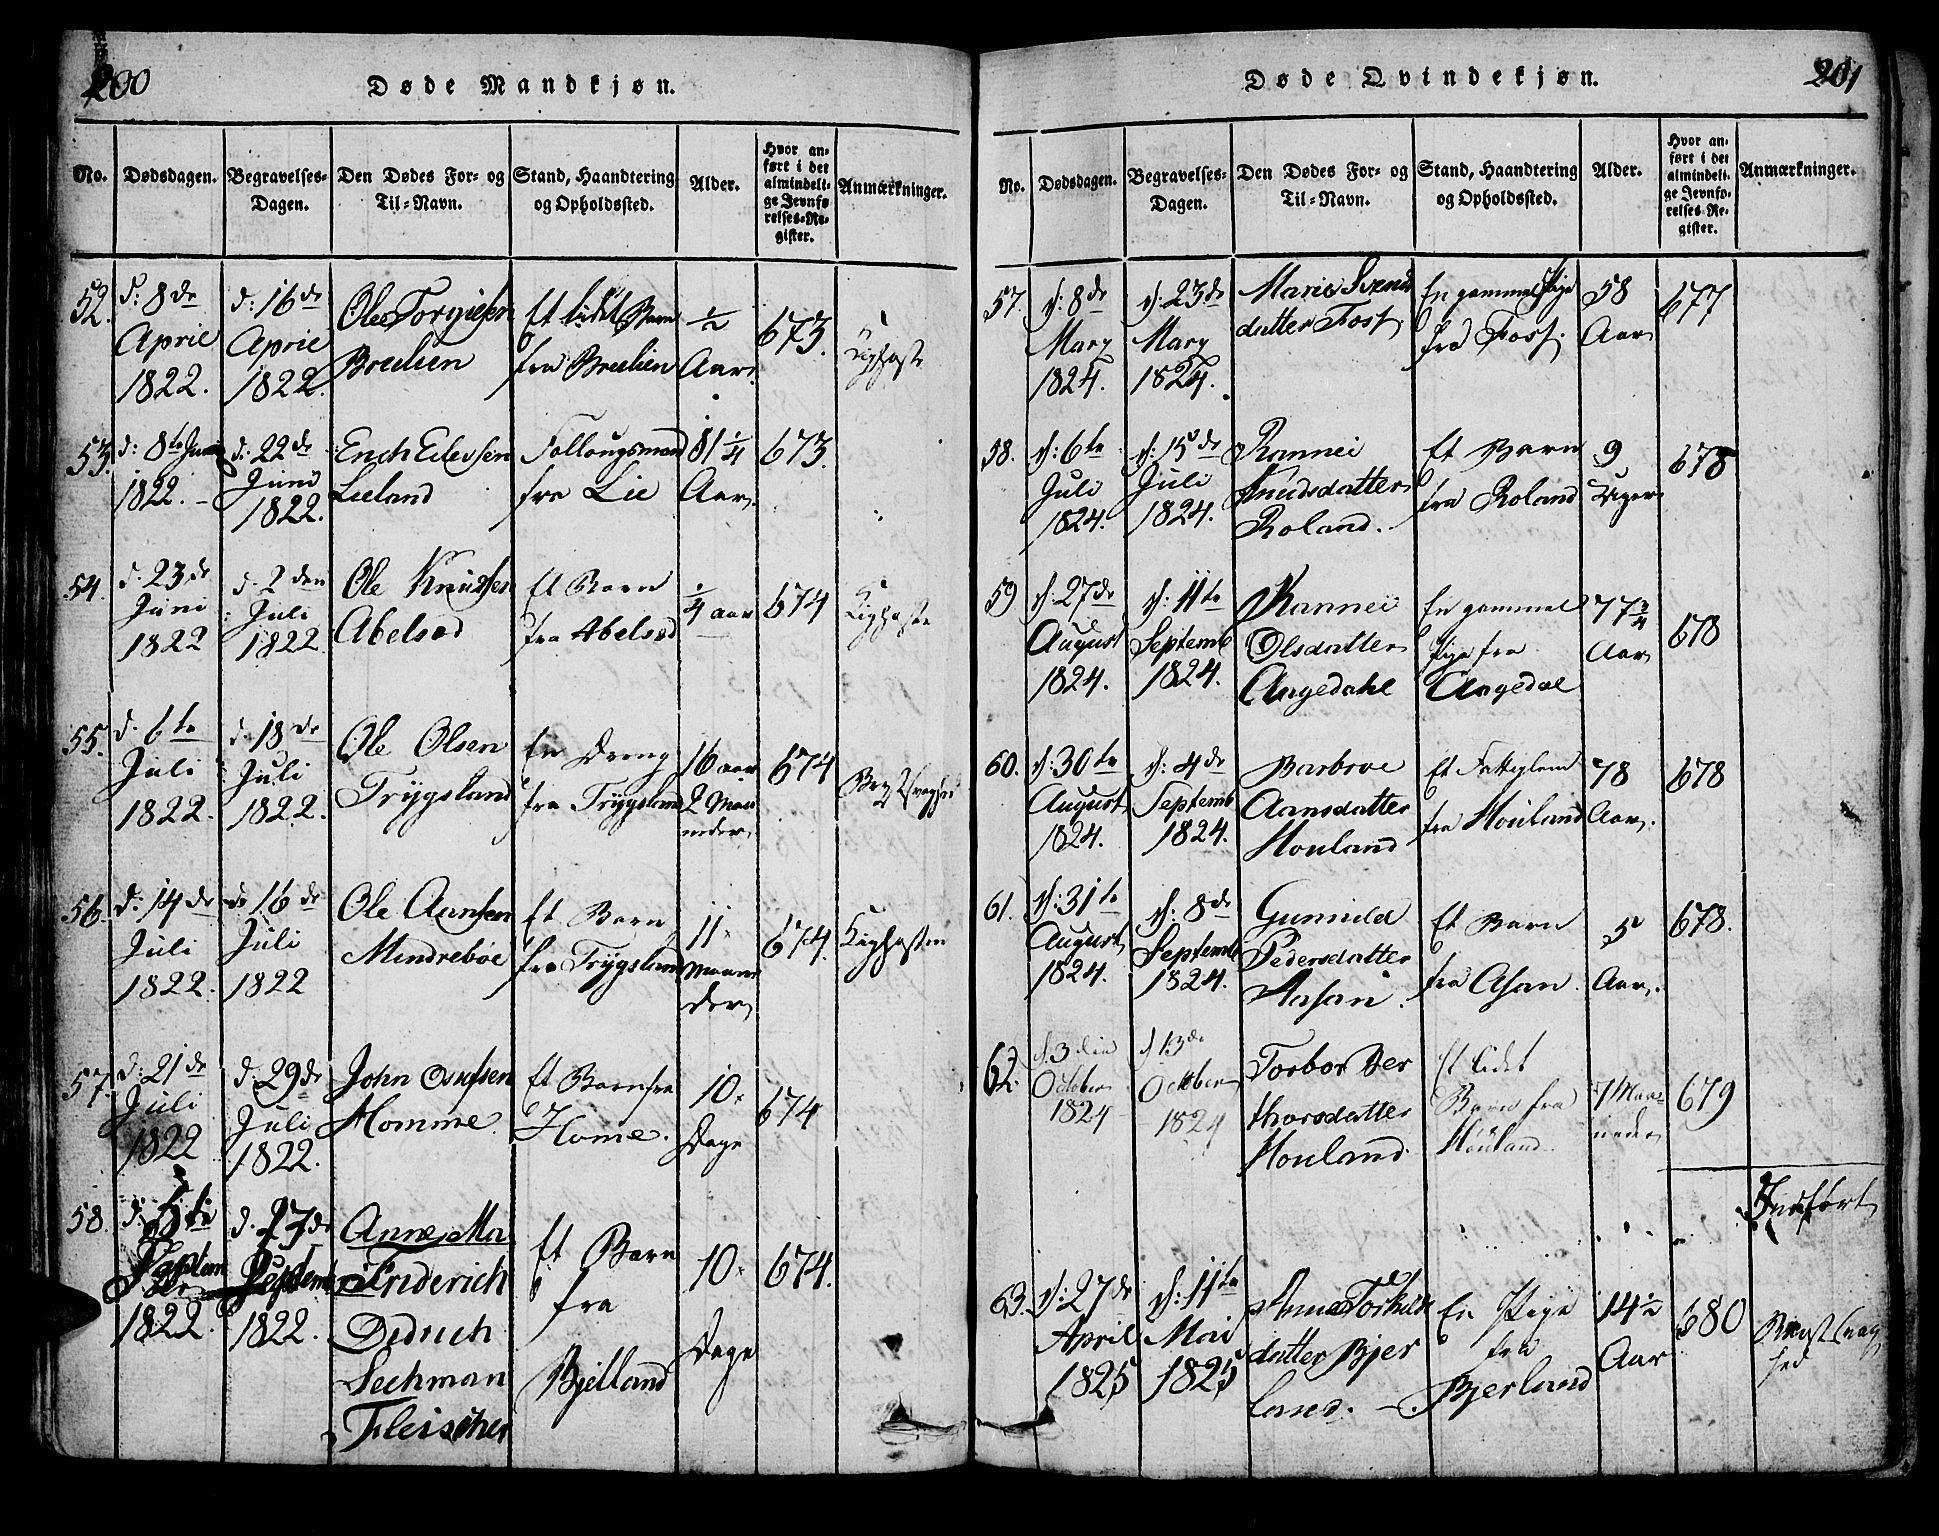 200
Døde Mandkjøn.
No.
Dødsdagen.
Begravelses-
Dagen.
Den Dødes For- og
Til-Navn.
Stand, Haandtering
og Opholdssted.
Alder.
Hvor an-
ført i det
almindeli-
ge Jevnfø-
relses-Re-
gister.
Anmærkninger.
52.
d: 8de
April
1822.
d: 16de
April
1822.
Ole Torgiesen
Breilien
Et lidet Barn
fra Breilien
1/2
Aar.
673.
Kighoste
53.
d: 8te Juni
1822.
d: 22de
Juni
1822.
Lieland
fra Lie
81 1/4
Aar.
673.
54.
d. 23de
Juni
1822
d. 2den
Juli
1822.
Ole Knudsen
Abelsed
Et Barn
fra Abelsed
1/4 aar
674
Kighoste
55.
d. 6te
Juli
1822.
d. 18de
Juli
1822.
Ole Olsen
Trygsland
En Dreng
fra Trygsland
16 aar
2 Maa
neder.
674
56.
d: 14de
Juli
1822.
d: 16de
Juli
1822
Ole Aansen
Mindrebøe
Et Barn
fra Trygsland
11
Maane
der
674.
Kighosten
57.
d: 21de
Juli
1822
d. 29de
Juli
1822.
John Osufsen
Homme.
Et Barn fra
Home.
10
Dage
674
58.
d.
Septem
ber
1822.
d. 27de
Septemb
1822.
Anne Ma
Friderich
Didrich
Sechman
Fleischer
Et Barn
fra
Bjelland
10
Dage
674.
201
Døde Qvindekjøn.
No.
Dødsdagen.
Begravelses-
Dagen.
Den Dødes For- og
Til-Navn.
Stand, Haandtering
og Opholdssted.
Alder.
Hvor an-
ført i det
almindeli-
ge Jevnfø-
relses Re-
gister.
Anmærkninger.
57.
d: 8de
Marz
1824.
d: 23de
Marz
1824.
Marie Svends
datter Foss
En gammel Pige
fra Foss.
58
Aar
677
58.
d: 6te
Juli
1824.
d: 15de
Juli
1824.
Rannei
Knudsdatter
Roland.
Et Barn
fra Roland
9
Uger
678
59
d. 27de
August
1824.
d: 11te
Septemb
1824.
Rannei
Olsdatter
Angedahl
En gammel
Pige fra
Angedal
77 3/4
Aar
678
60.
d: 30te
August
1824.
d: 4de
Septemb
1824.
Barbroe
Aansdatter
Houland
Et Fattiglem
fra Houland
78
Aar.
678
61.
d: 31te
August
1824.
d: 8de
Septemb
1824.
Gunnild
Pedersdatter
Aasan.
Et Barn
fra Asan.
5
Aar.
678.
62.
d. 3die
October
1824
d 13de
October
1824
Torbor Ber
thorsdatter
Houland.
Et lidet
Barn fra
Houland.
7 Maa-
neder
679
Indført
63.
d: 27de
April
1825
d: 11te
Mai
1825
Anna Torkilds
datter Bjer
land.
En Pige
fra
Bjerland
14 1/2
Aar
680
Brystsvag
hed